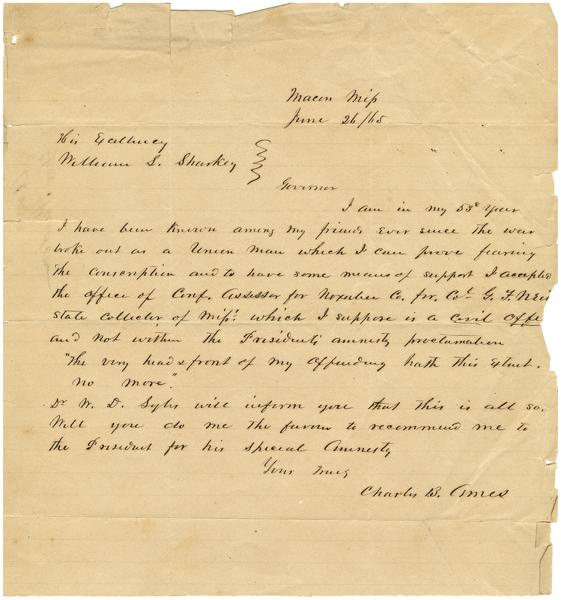 Macon Miss
June 26/65
His Excellency
William L. Sharkey
Governor
I am in my 53d Year
I have been known among my friends ever since the war
broke out as a Union Man which I can prove fearing
the Conscription and to have some means of support I accepted
the office of Conf. Assessor for Noxubee Co. for Col G. F.
state collector of Miss. which I suppose is a Civil Offi
and not within the Presidents amnesty proclamation
"The very head & front of my offending hath this Extent.
no more."
Dr W. D. will inform you that this is all so.
Will you do me the favour to recommend me to
the President for his special Amnesty
Your truly
Charles B. Ames